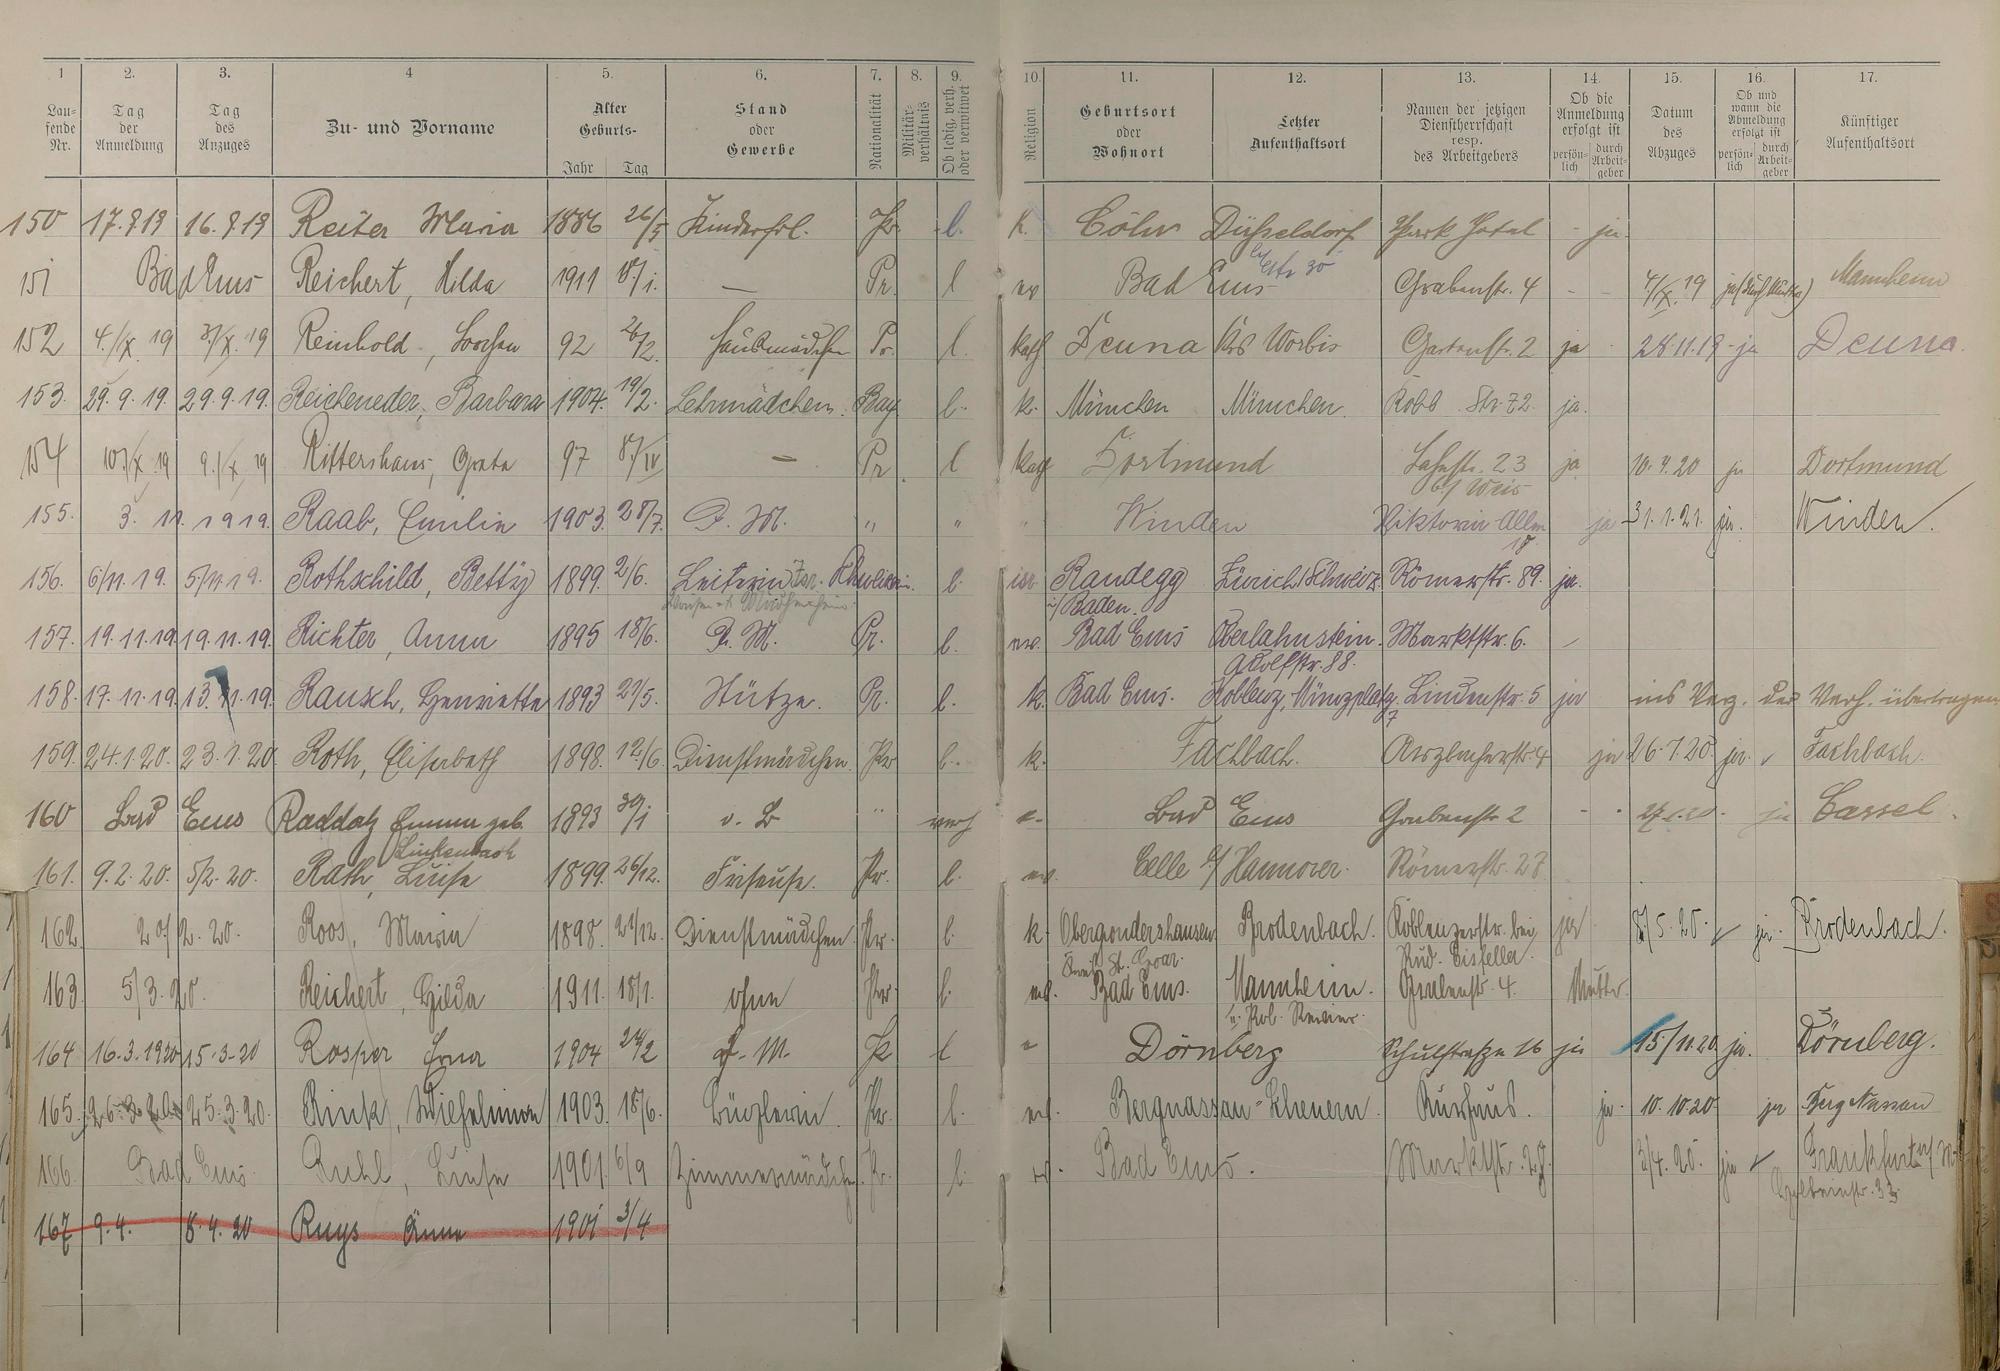 1 2. 3. 4 5. 6. 7. 8. 9. 10. 11. 12. 13. 14. 15. 16. 17.
Lau-
fende
Nr.
Tag
der
Anmeldung
Tag
des
Anzuges
Zu- und Vorname
Alter
Geburts-
Jahr Tag
Stand
oder
Gewerbe
Nationalität
Militär-
verhältnis
Ob ledig, verh.
oder verwitwet
Religion
Geburtsort
oder
Wohnort
Letzter
Aufenthaltsort
Namen der jetzigen
Dienstherrschaft
resp.
des Arbeitgebers
Ob die
Anmeldung
erfolgt ist
persön-
lich
durch
Arbeit-
geber
Datum
des
Abzuges
Ob und
wann die
Abmeldung
erfolgt ist
persön-
lich
durch
Arbeit-
geber
Künftiger
Aufenthaltsort
150 17.9.19 16.9.19 Reiter Maria 1886 26/5 Kinderfrl. Pr. l. K. Cöln Düsseldorf Park Hotel - ja.
151 Bad Ems Reichert, Hilda 1911 18/1. — Pr. l ev Bad Ems Grabenstr. 4 - - 4/IX.19 Mannheim
152 4./IX.19 3/IX.19 Reinhold, 92 2. Hausmädchen Pr. l. Kath Deuna Krs Worbis Gartenstr. 2 ja 28.11.19 - ja Deuna.
153. 29.9.19. 29.9.19. Reicheneder, Barbara 1904. 19/2. Lehrmädchen. Bay l. k. München München. Kobl. Str. 72. ja.
154 10./X.19 9./X.19 Rittershaus, Greta 97 8./IV — Pr. l Kath Dortmund Lahnstr. 23 ja 10.4.20 ja Dortmund
b/ Weis
155. 3. 11. 1919. Raab, Emilie 1903. 28/7. D. M. " " " Winden Viktoria-Allee ja 31.1.21. ja. Winden.
18
156. 6/11.19. 5/11.19. Rothschild, Betty 1899. 2/6. Leiterin Isr. Schweizerin. l. isr Randegg Zürich/Schweiz. Römerstr. 89. ja.
i/Baden.
157. 19.11.19. 19.11.19. Richter, Anna 1895 18/6. D. M. Pr. l. ev. Bad Ems Oberlahnstein. Marktstr. 6. -
Adolfstr. 88.
158. 17.11.19. 13.11.19. Rausch, Henriette 1893 21/5. Stütze. Pr. l. k. Bad Ems. Koblenz, Münzplatz Lindenstr. 5 ja ins Verz. der Verh. übertragen
7
159. 24.1.20. 23.1.20. Roth, Elisabeth 1898. 12/6. Dienstmädchen. Pr l. k. Fachbach. Arzbacherstr. 4 ja 26.7.20. ja. Fachbach.
160 Bad Ems Raddatz Emma geb. 1893 30/1 o. B " verh e. Bad Ems Grabenstr. 2 - - ja Cassel.
Linkenbach
161. 9.2.20. 5/2.20. Rath, Luise 1899. 26/12. Friseuse. Pr. l. ev. Celle b/Hannover. Römerstr. 27
162. 20/2.20. Roos, Maria 1898. 21/12. Dienstmädchen Pr. l. k. Obergondershausen Brodenbach. Koblenzerstr. bei ja 8/5.20. ja. Brodenbach.
Kreis St. Goar. Rud. Eisfeller.
163. 5/3.20. Reichert, Hilda 1911. 18/1. ohne Pr. l. ev. Bad Ems. Mannheim. Grabenstr. 4. Mutter.
164 16.3.1920 15.3.20 Rosper Erna 1904 24/2 D. M. Pr l e Dörnberg Schulstraße 16 ja 15/11.20 ja. Dörnberg.
165. 26.3.20. 25.3.20. Rink, Wilhelmine 1903. 18/6. Büglerin. Pr. l. ev. Bergnassau-Scheuern. Kurhaus. ja. 10.10.20. ja Berg Nassau
166. Bad Ems. Ruhl, Luise 1901. 6/9 Zimmermädchen. Pr. l. ev. Bad Ems. Marktstr. 3/4.20. ja Frankfurt a/M.
167 9.4. 8.4.20 Ruys Änne 1901 3/4